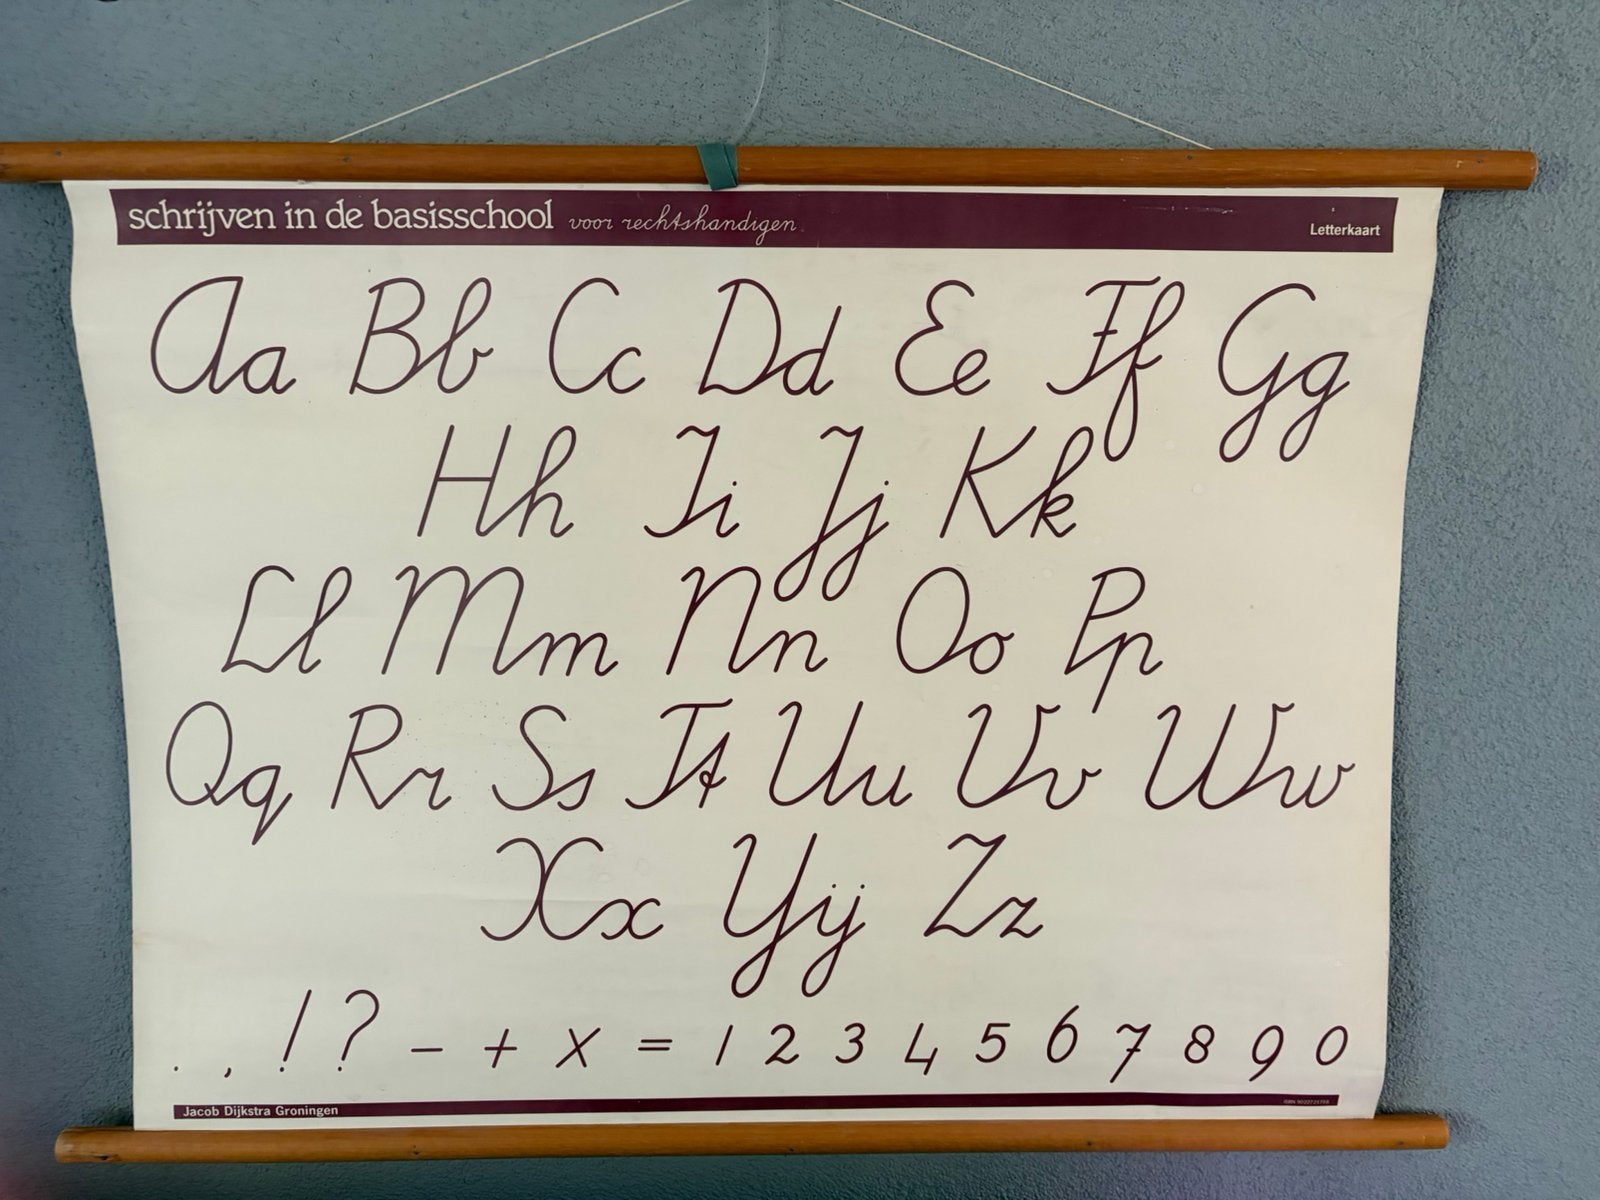 schrijven in de basisschool voor rechtshandigen Letterkaart
Aa Bb Cc Dd Ee Ff Gg
Hh Ii Jj Kk
Ll Mm Nn Oo Pp
Qq Rr Ss Tt Uu Vv Ww
Xx Yij Zz
. , ! ? - + x = 1 2 3 4 5 6 7 8 9 0
Jacob Dijkstra Groningen